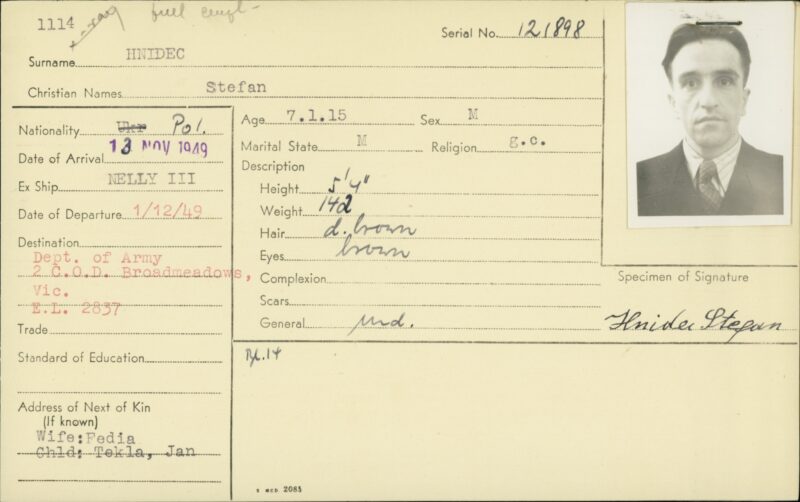 1114
x-ray full empl-
Serial No. 121898
Surname HNIDEC
Christian Names Stefan
Nationality Ukr Pol.
Date of Arrival 13 NOV 1949
Ex Ship NELLY III
Date of Departure 1/12/49
Destination
Dept. of Army
2 C.O.D. Broadmeadows,
Vic.
E.L. 2837
Trade
Standard of Education
Address of Next of Kin
(If known)
Wife: Fedia
Chld: Tekla, Jan
Age 7.1.15 Sex M
Marital State M Religion g.c.
Description
Height 5'4"
Weight 142
Hair d. brown
Eyes brown
Complexion
Scars
General Md.
Specimen of Signature
Hnidec Stefan
2085